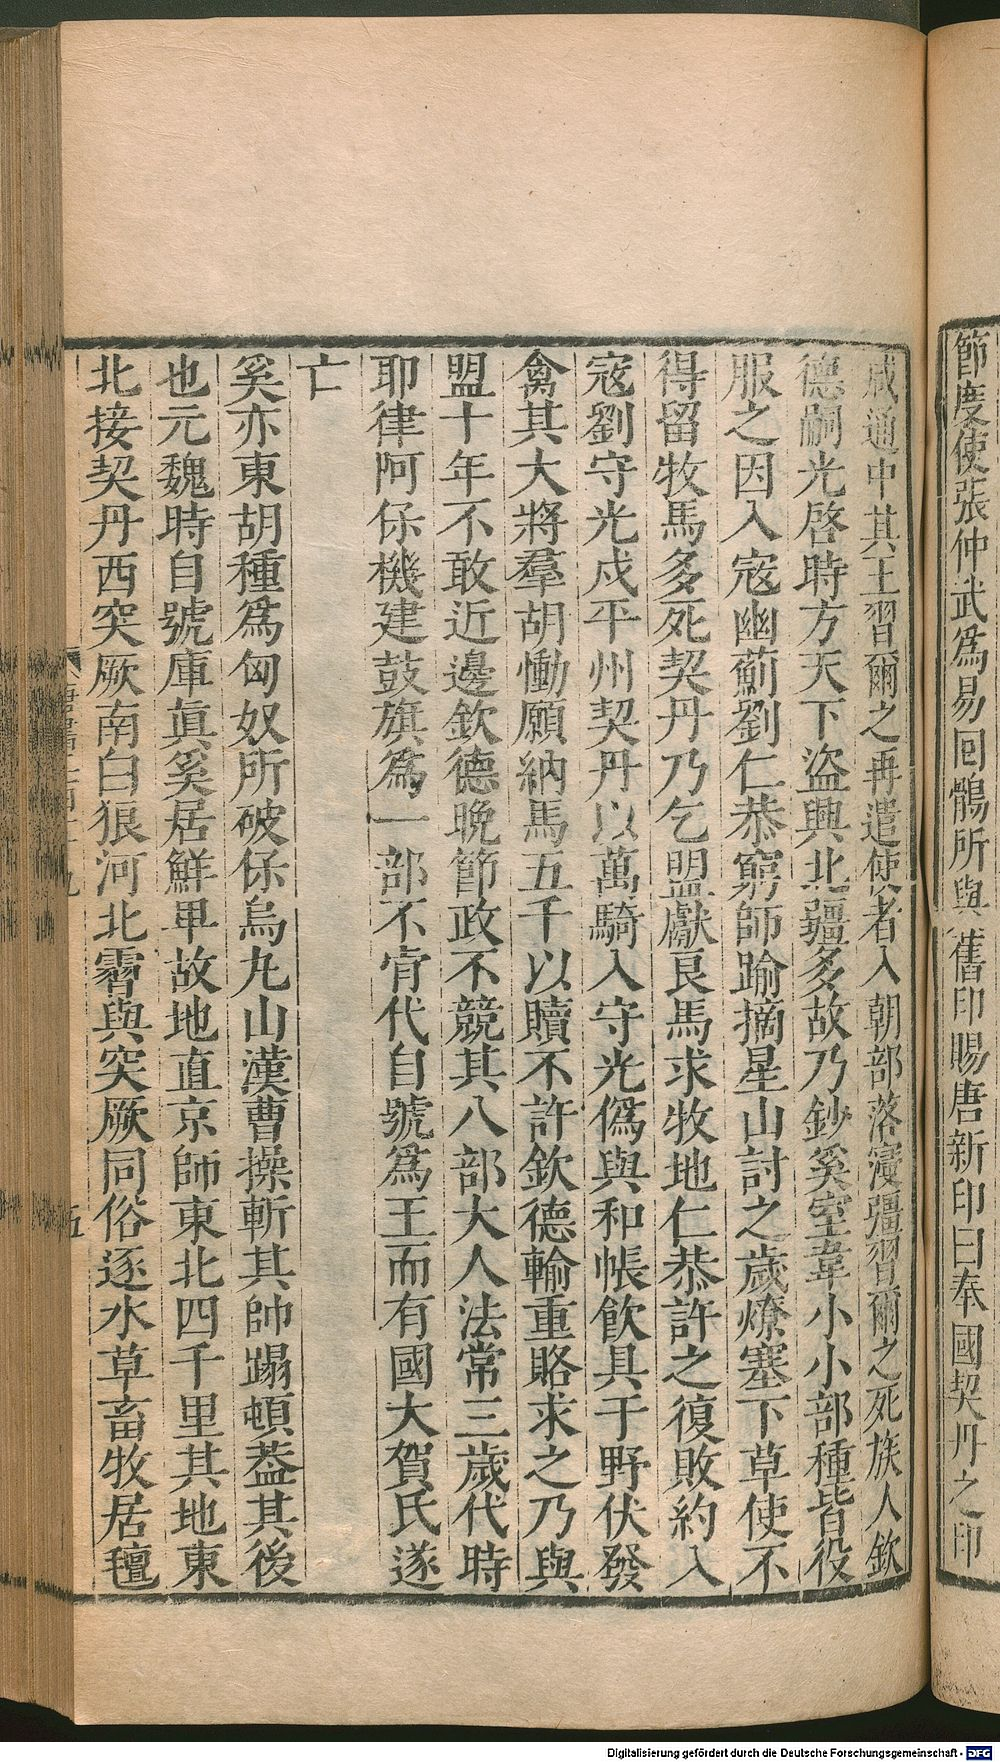 節度使張仲武爲易回鶻所與舊印賜唐新印曰奉國契丹之印
咸通中其王習爾之再遣使者入朝部落寖彊習爾之死族人欽
德嗣光啓時方天下盜興北疆多故乃鈔奚室韋小小部種皆役
服之因入寇幽薊劉仁恭窮師踰摘星山討之歲燎塞下草使不
得留牧馬多死契丹乃乞盟獻良馬求牧地仁恭許之復敗約入
寇劉守光戍平州契丹以萬騎入守光僞與和帳飲具于野伏發
禽其大將羣胡慟願納馬五千以贖不許欽德輸重賂求之乃與
盟十年不敢近邊欽德晚節政不競其八部大人法常三歲代時
耶律阿保機建鼓旗爲一部不肯代自號爲王而有國大賀氏遂
亡
奚亦東胡種爲匈奴所破保烏丸山漢曹操斬其帥蹋頓葢其後
也元魏時自號庫眞奚居鮮卑故地直京師東北四千里其地東
北接契丹西突厥南白狼河北霫與突厥同俗逐水草畜牧居氊
五
Digitalisierung gefördert durch die Deutsche Forschungsgemeinschaft - DFG